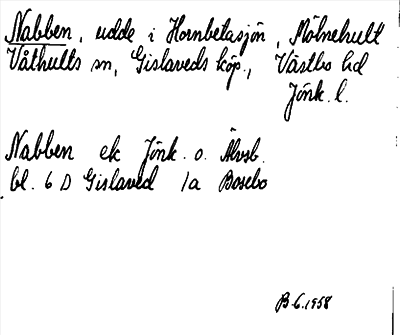 Nabben, udde i Hornbetasjön, Mölnehult
Våthults sn, Gislaveds köp., Västbo hd
Jönk. l.
Nabben ek Jönk. o. Älvsb.
bl. 6 D Gislaved 1a Bosebo
B. 6. 1958